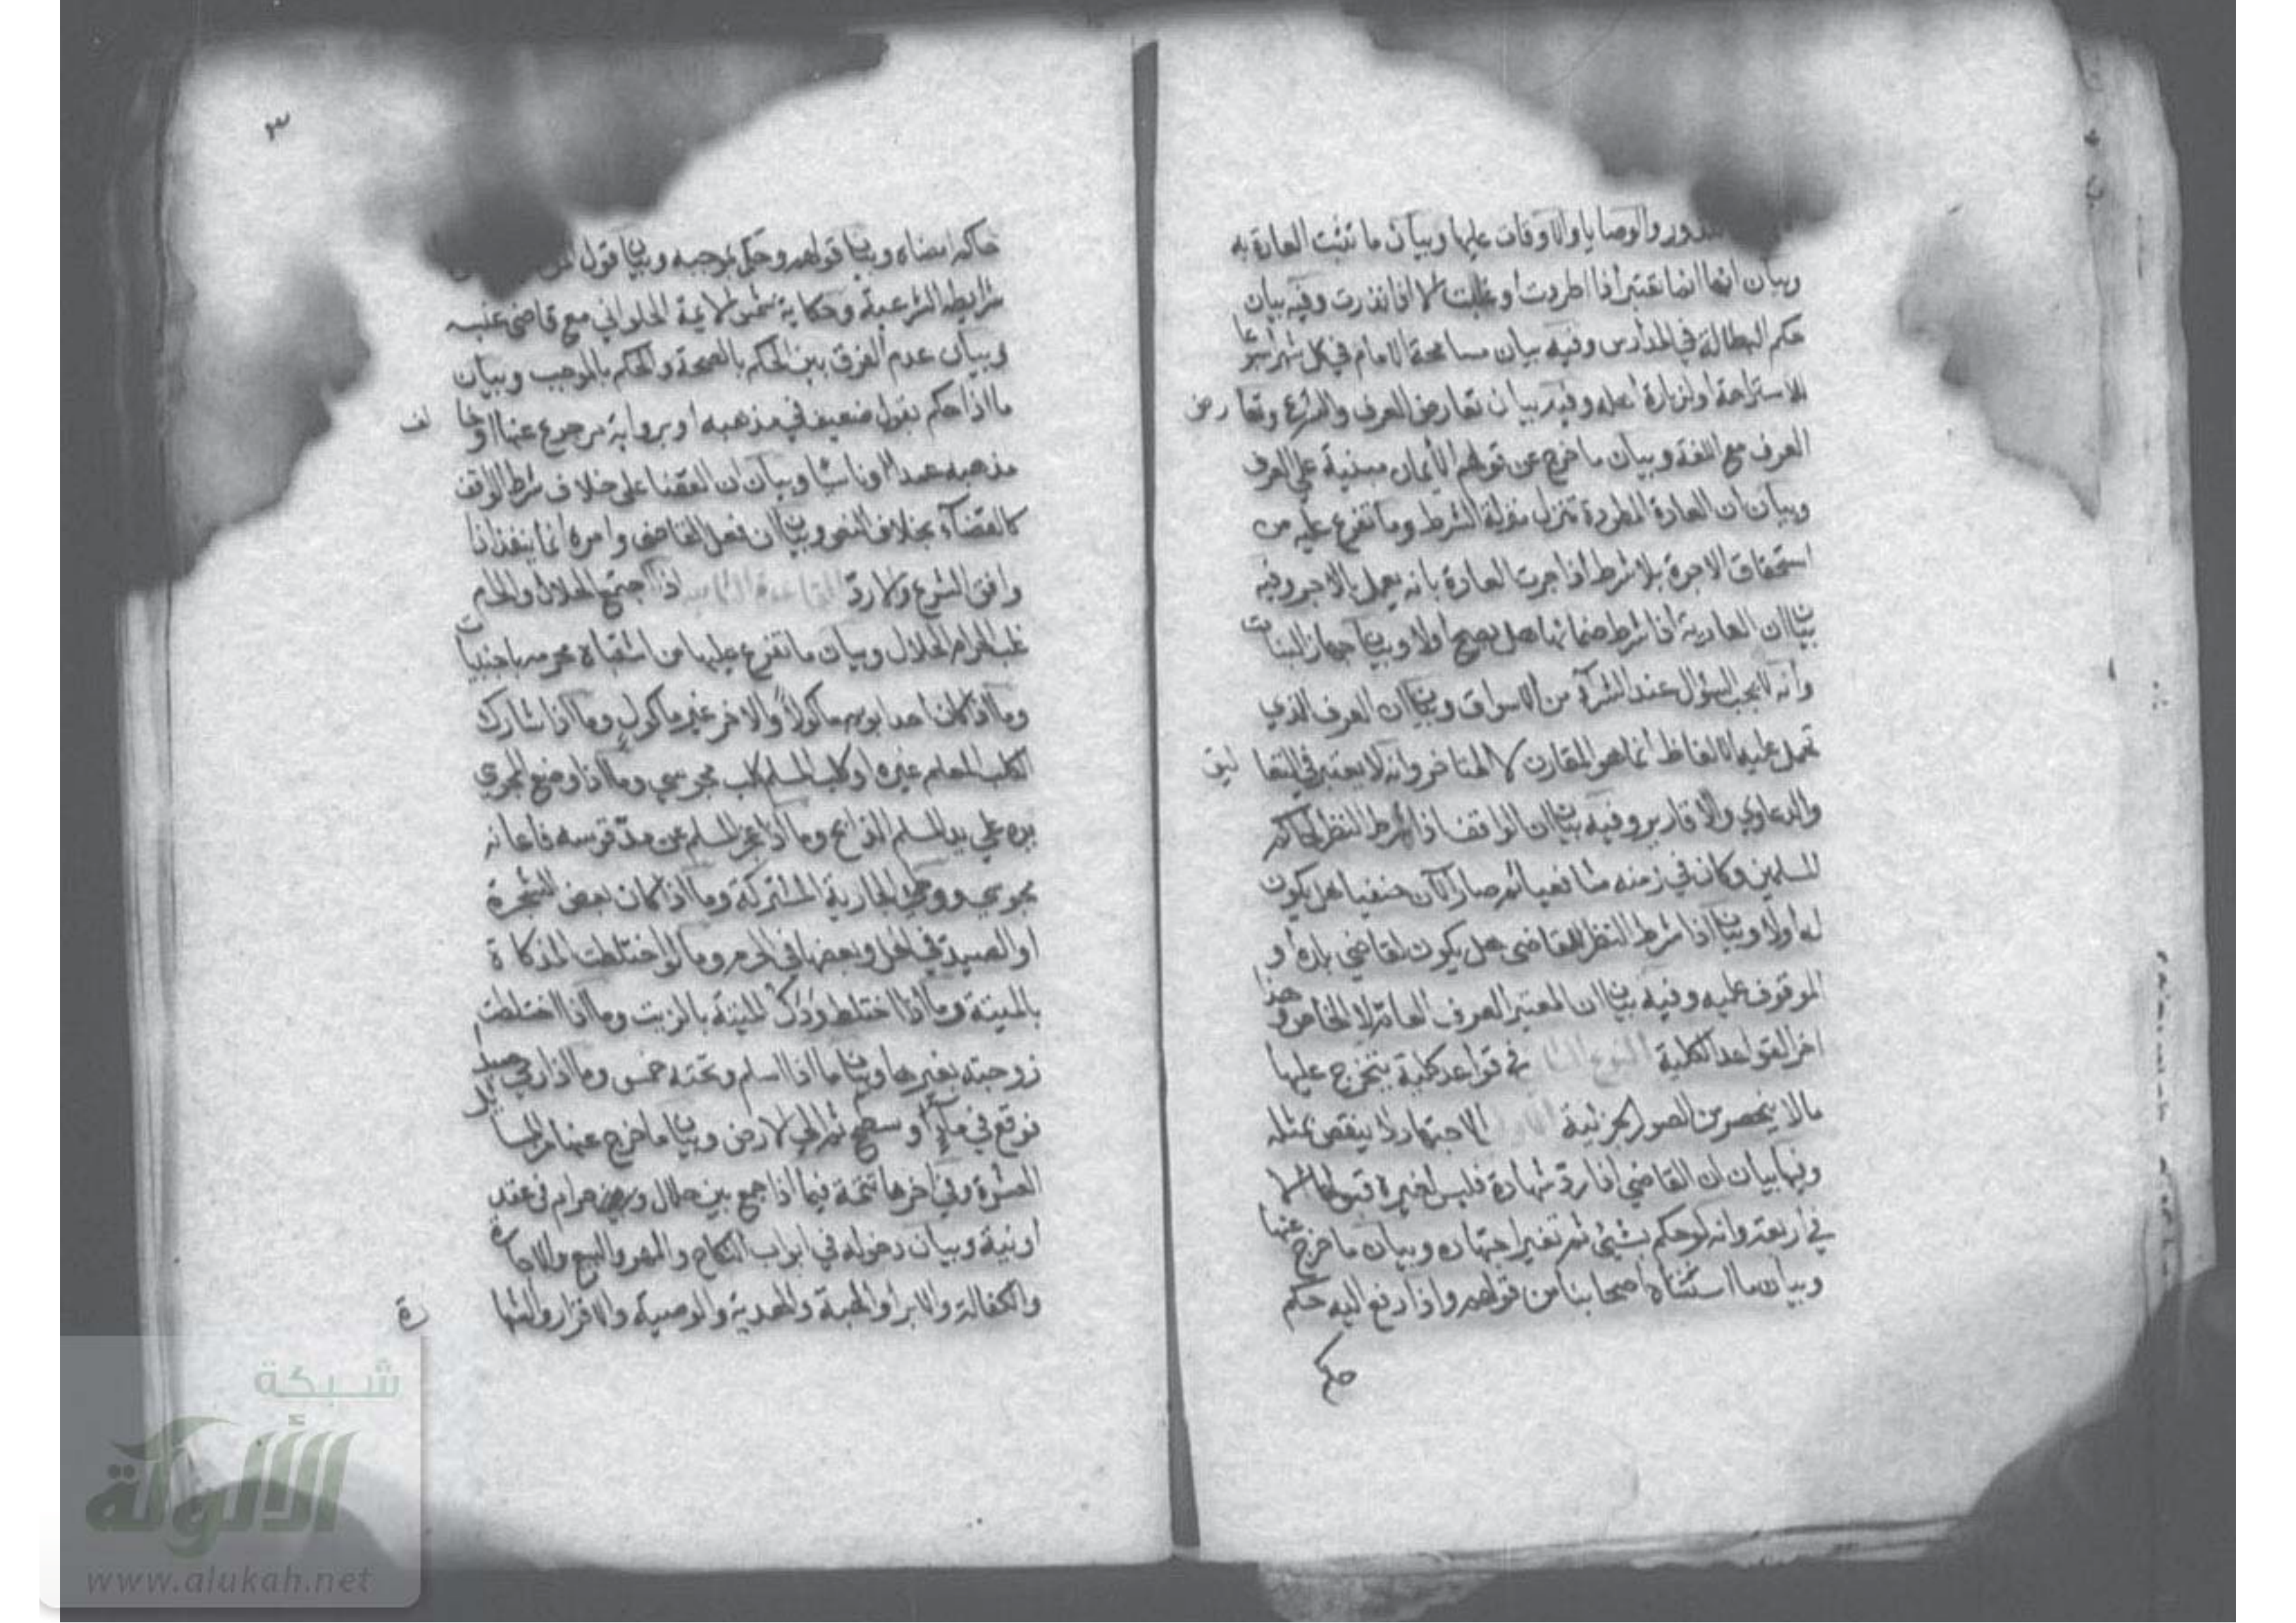 والوصايا والاوقاف عليها وبيان ما تثبت العادة به
وبيان انها انما تعتبر اذا اطردت او غلبت لا اذا ندرت وفيه بيان
حكم البطالة في المدارس وفيه بيان مسامحة الامام في كل شهر
للاستراحة او لزيارة اهله وفيه بيان تعارض العرف والشرع وتعارض
العرف مع اللغة وبيان ما خرج عن قولهم الأيمان مبنية علي العرف
وبيان ان العادة المطردة تنزل منزلة الشرط وما تفرع عليه من
استحقاق الاجرة بلا شرط اذا جرت العادة بانه يعمل بالاجر وفيه
بيان ان العارية اذا شرط ضمانها هل يصح اولا وبيان جهاز البنات
وانه لا يجب السؤال عند الشرآء من الاسواق وبيان ان العرف الذي
تحمل عليه الالفاظ انما هو المقارن لا المتاخر وانه لا يعتبر في التعاليق
والدعاوي والاقارير وفيه بيان ان الواقف اذا شرط النظر لحاكم
المسلمين وكان في زمنه شافعيا ثم صار الآن حنفيا هل يكون
له أولا وبيان اذا شرط النظر للقاضي هل يكون لقاضي بلده او
الموقوف عليه وفيه بيان ان المعتبر العرف العام لا الخاص وهذا
اخر القواعد الكلية النوع الثاني في قواعد كلية يتخرج عليها
مالا ينحصر من الصور الجزئية الاولى الاجتهاد لا ينقض بمثله
وفيها بيان ان القاضي اذا رد شهادة فليس لغيره قبولها الا
في أربعة وانه لو حكم بشئ ثم تغير اجتهاده وبيان ما خرج عنها
وبيان ما استثناه اصحابنا من قولهم واذا رفع اليه حكم
حاكم
٣
حاكم امضاه وبيان قولهم وحكم بموجبه وبيان قول
شرايطه الشرعية وحكاية شمس الايمة الحلواني مع قاضي عنبسه
وبيان عدم الفرق بين الحكم بالصحة والحكم بالموجب وبيان
ما اذا حكم بقول ضعيف في مذهبه او برواية مرجوع عنها او خالف
مذهبه عمدا او ناسيا وبيان ان القضا على خلاف شرط الواقف
كالقضآء بخلاف النص وبيان ان فعل القاضي وامره انما ينفذ اذا
وافق الشرع والا رد القاعدة الثانية اذا اجتمع الحلال والحرام
غلب الحرام الحلال وبيان ما تفرع عليها من اشتباه محرمه باجنبيات
وما اذا كان احد ابويه مأكولاً والاخر غير ماكول وما اذا شارك
الكلب المعلم غيره او كلب المسلم كلب مجوسي وما اذا وضع المجوسي
يده علي يد المسلم الذابح وما اذا عجز المسلم عن مد قوسه فاعانه
مجوسي ووطئ الجارية المشتركة وما اذا كان بعض الشجرة
او الصيد في الحل وبعضها في الحرم وما لو اختلطت المذكاة
بالميتة وما اذا اختلط ودك الميتة بالزيت وما اذا اختلطت
زوجته بغيرها وبيان ما اذا اسلم وتحته خمس وما اذا رمي صيدا
فوقع في مآء أو سطح ثم الي الارض وبيان ما خرج عنها من المسائل
العشرة وفي اخرها تتمة فيما اذا جمع بين حلال وحرام في عقد
او نية وبيان دخوله في ابواب النكاح والمهر والبيع والاجارة
والكفالة والابرا والهبة والهدية والوصية والاقرار والشهادة
شبكة
الألوكة
www.alukah.net